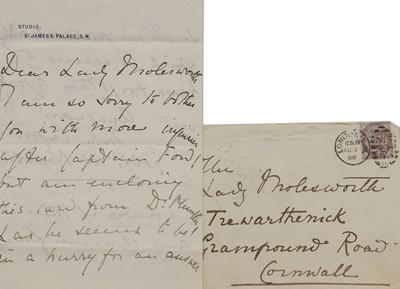 STUDIO,
ST JAMES'S PALACE, S.W.
Dear Lady Molesworth
I am so sorry to bother
you with more inquiries
after Captain Ford,
but am enclosing
this card from Dr.
as he seems to be
in a hurry for an answer
LONDON
AU
00
The
Lady Molesworth
Trewarthenick
Grampound Road
Cornwall